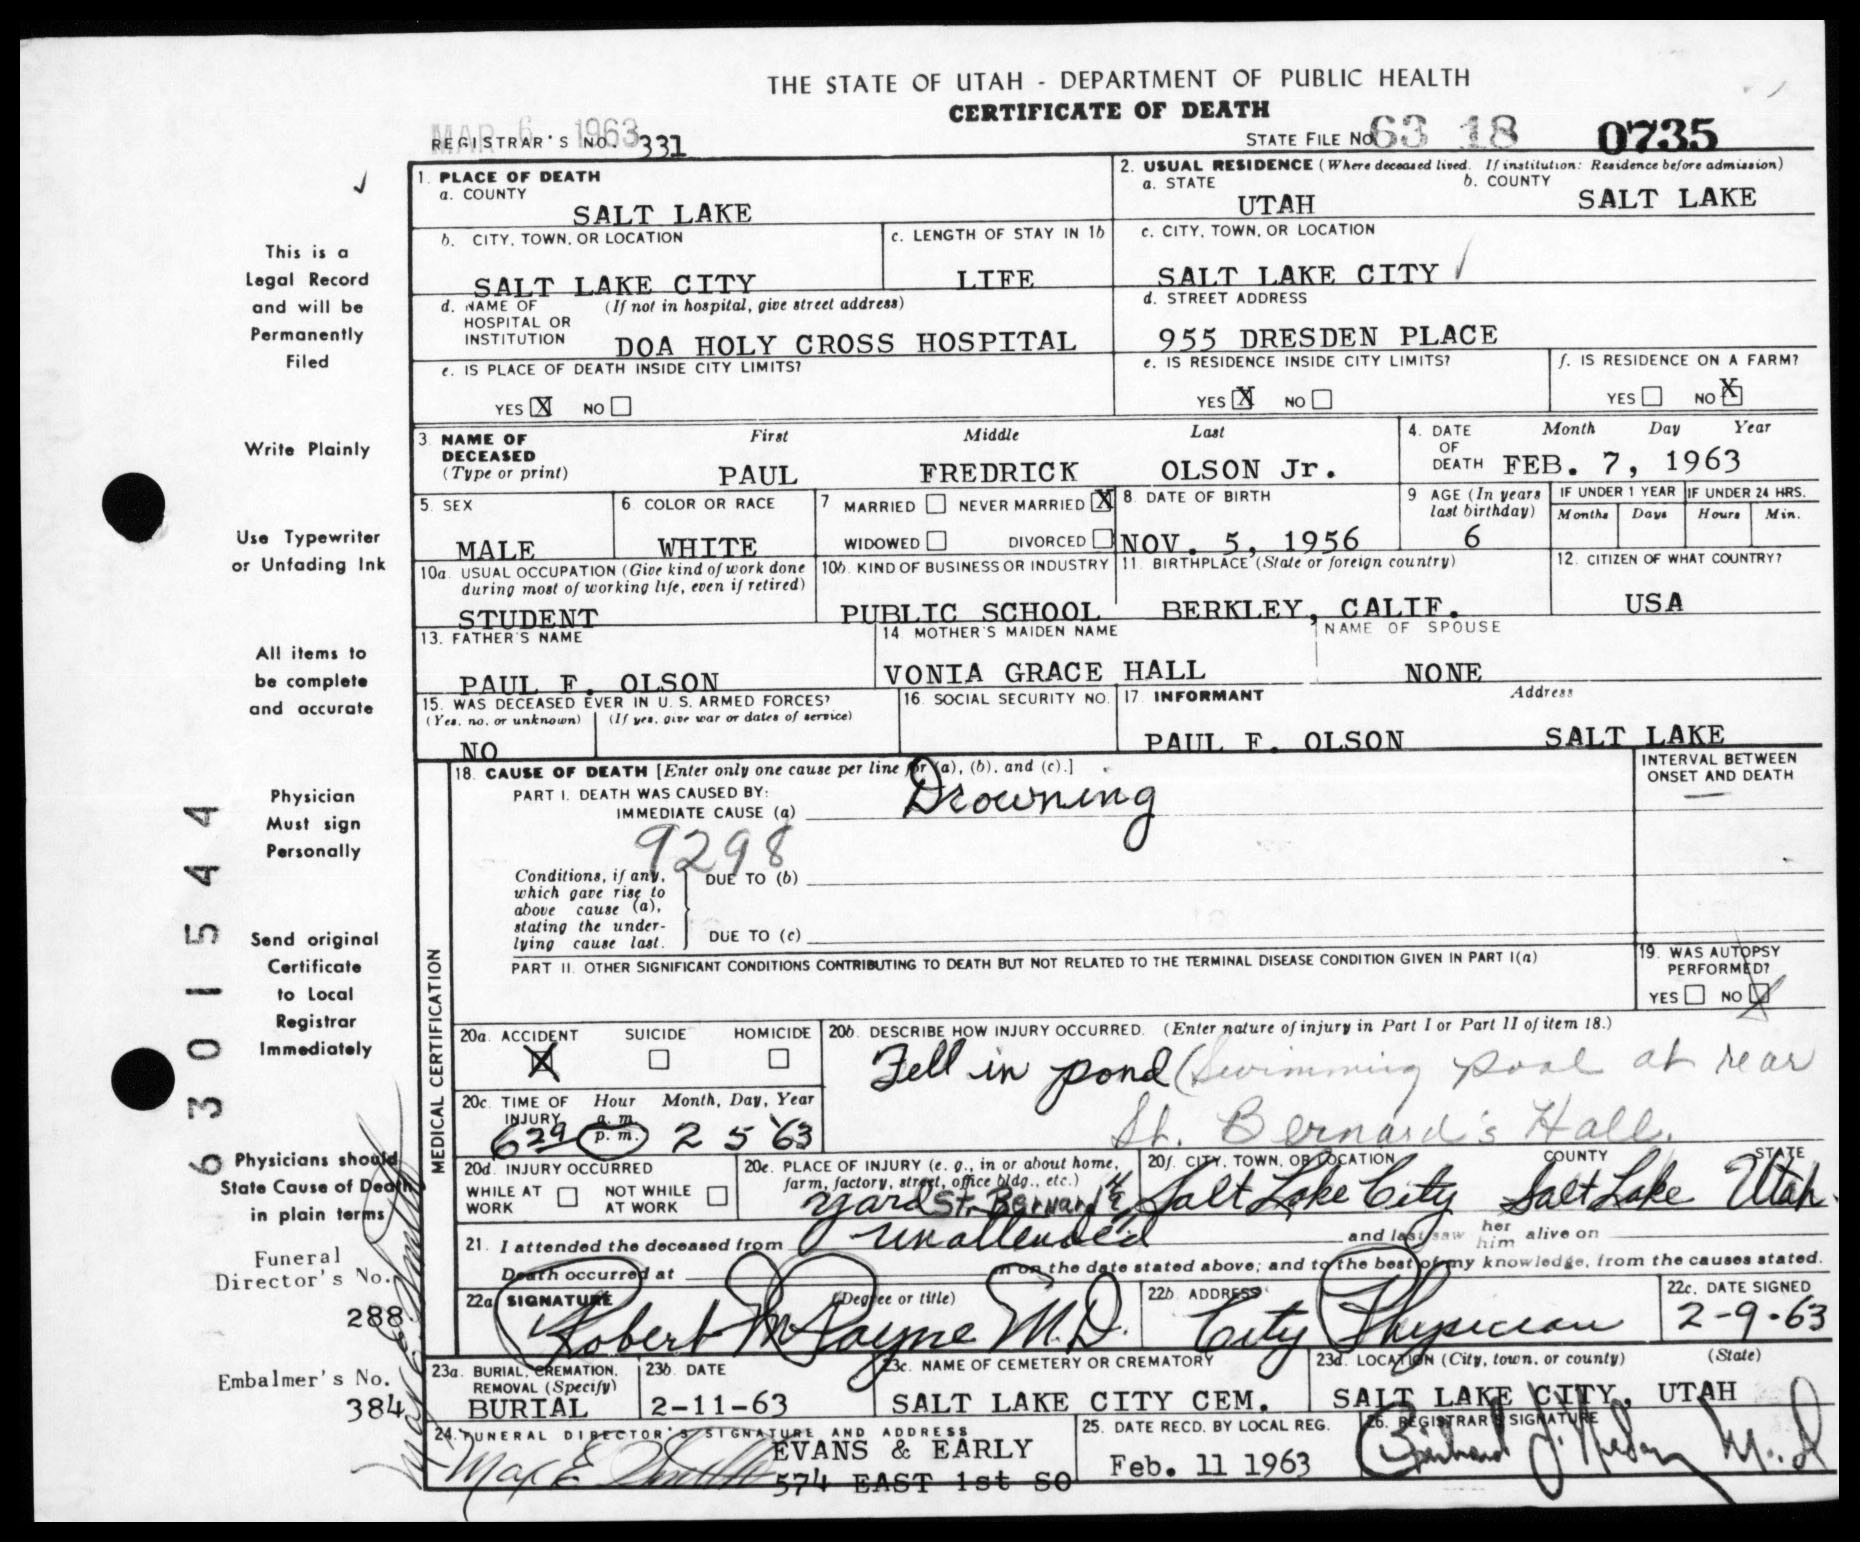 THE STATE OF UTAH - DEPARTMENT OF PUBLIC HEALTH
CERTIFICATE OF DEATH
MAR 6 1963
REGISTRAR'S NO. 331
STATE FILE NO 63 18 0735
1. PLACE OF DEATH
a. COUNTY
SALT LAKE
2. USUAL RESIDENCE (Where deceased lived. If institution: Residence before admission)
a. STATE b. COUNTY
UTAH SALT LAKE
b. CITY, TOWN, OR LOCATION
SALT LAKE CITY
c. LENGTH OF STAY IN 1b
LIFE
c. CITY, TOWN, OR LOCATION
SALT LAKE CITY
d. NAME OF (If not in hospital, give street address)
HOSPITAL OR
INSTITUTION DOA HOLY CROSS HOSPITAL
d. STREET ADDRESS
955 DRESDEN PLACE
e. IS PLACE OF DEATH INSIDE CITY LIMITS?
YES X NO
e. IS RESIDENCE INSIDE CITY LIMITS?
YES X NO
f. IS RESIDENCE ON A FARM?
YES NO X
3. NAME OF First Middle Last
DECEASED
(Type or print) PAUL FREDRICK OLSON Jr.
4. DATE Month Day Year
OF
DEATH FEB. 7, 1963
5. SEX
MALE
6. COLOR OR RACE
WHITE
7 MARRIED NEVER MARRIED X
WIDOWED DIVORCED
8. DATE OF BIRTH
NOV. 5, 1956
9 AGE (In years
last birthday)
6
IF UNDER 1 YEAR IF UNDER 24 HRS.
Months Days Hours Min.
10a. USUAL OCCUPATION (Give kind of work done
during most of working life, even if retired)
STUDENT
10b. KIND OF BUSINESS OR INDUSTRY
PUBLIC SCHOOL
11. BIRTHPLACE (State or foreign country)
BERKLEY, CALIF.
12. CITIZEN OF WHAT COUNTRY?
USA
13. FATHER'S NAME
PAUL F. OLSON
14 MOTHER'S MAIDEN NAME
VONIA GRACE HALL
NAME OF SPOUSE
NONE
15. WAS DECEASED EVER IN U.S. ARMED FORCES?
(Yes, no, or unknown) (If yes, give war or dates of service)
NO
16. SOCIAL SECURITY NO.
17. INFORMANT Address
PAUL F. OLSON SALT LAKE
18. CAUSE OF DEATH [Enter only one cause per line for (a), (b), and (c).]
PART I. DEATH WAS CAUSED BY:
IMMEDIATE CAUSE (a) Drowning
9298
INTERVAL BETWEEN
ONSET AND DEATH
Conditions, if any,
which gave rise to
above cause (a),
stating the under-
lying cause last.
DUE TO (b)
DUE TO (c)
PART II. OTHER SIGNIFICANT CONDITIONS CONTRIBUTING TO DEATH BUT NOT RELATED TO THE TERMINAL DISEASE CONDITION GIVEN IN PART I(a)
19. WAS AUTOPSY
PERFORMED?
YES NO X
MEDICAL CERTIFICATION
20a. ACCIDENT SUICIDE HOMICIDE
X
20b. DESCRIBE HOW INJURY OCCURRED. (Enter nature of injury in Part I or Part II of item 18.)
Fell in pond (Swimming pool at rear
St. Bernard's Hall.
20c. TIME OF Hour Month, Day, Year
INJURY a. m.
629 p. m. 2 5 '63
20d. INJURY OCCURRED
WHILE AT NOT WHILE
WORK AT WORK
20e. PLACE OF INJURY (e. g., in or about home,
farm, factory, street, office bldg., etc.)
yard St. Bernard
20f. CITY, TOWN, OR LOCATION COUNTY STATE
Salt Lake City Salt Lake Utah
21. I attended the deceased from unattended and last saw her him alive on
Death occurred at m on the date stated above; and to the best of my knowledge, from the causes stated.
22a. SIGNATURE (Degree or title)
Robert M Payne M.D.
22b. ADDRESS
City Physician
22c. DATE SIGNED
2-9-63
23a. BURIAL, CREMATION,
REMOVAL (Specify)
BURIAL
23b. DATE
2-11-63
23c. NAME OF CEMETERY OR CREMATORY
SALT LAKE CITY CEM.
23d. LOCATION (City, town, or county) (State)
SALT LAKE CITY, UTAH
24. FUNERAL DIRECTOR'S SIGNATURE AND ADDRESS
Max E Smith EVANS & EARLY
574 EAST 1st SO
25. DATE RECD. BY LOCAL REG.
Feb. 11 1963
26. REGISTRAR'S SIGNATURE
This is a
Legal Record
and will be
Permanently
Filed
Write Plainly
Use Typewriter
or Unfading Ink
All items to
be complete
and accurate
Physician
Must sign
Personally
Send original
Certificate
to Local
Registrar
Immediately
Physicians should
State Cause of Death
in plain terms
Funeral
Director's No.
288
Embalmer's No.
384
Max E. Smith
6301544